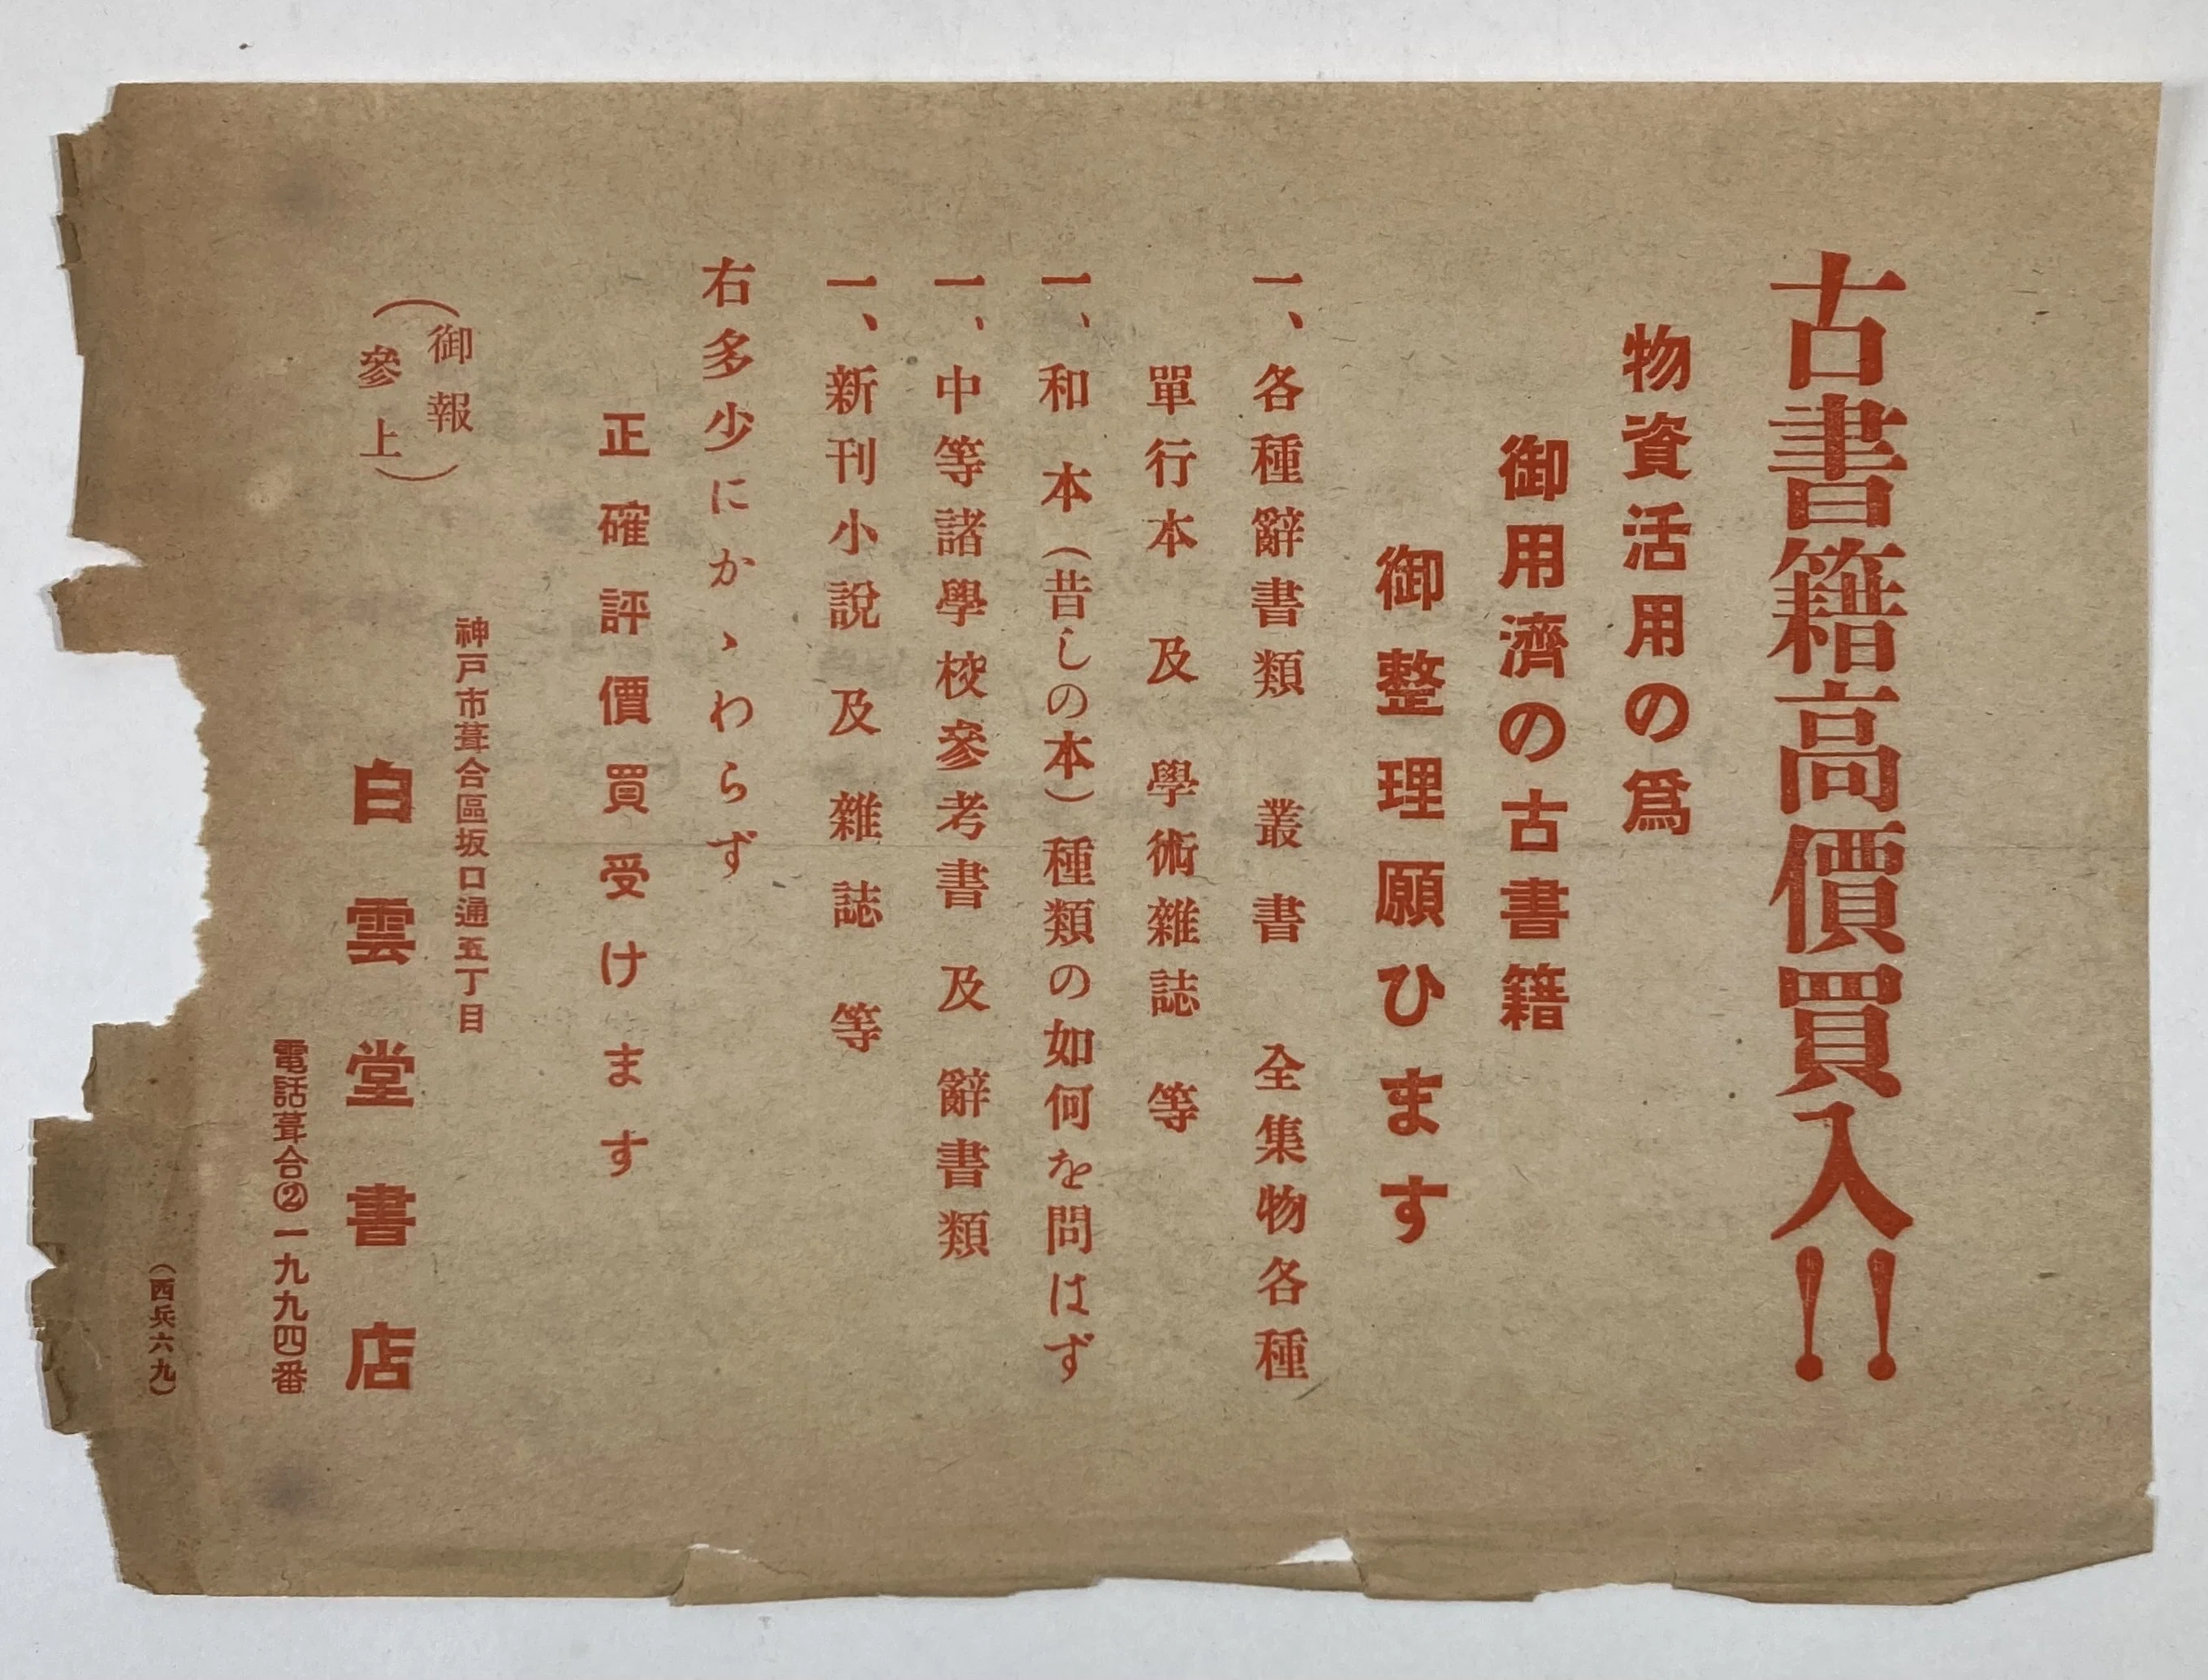 古書籍高價買入!!
物資活用の爲
御用濟の古書籍
御整理願ひます
一、各種辭書類 叢書 全集物各種
單行本 及 學術雜誌 等
一、和本(昔しの本)種類の如何を問はず
一、中等諸學校參考書 及 辭書類
一、新刊小說 及 雜誌 等
右多少にかゝわらず
正確評價買受けます
(御報參上)
神戸市葺合區坂口通五丁目
白雲堂書店
電話葺合②一九九四番
(西兵六九)